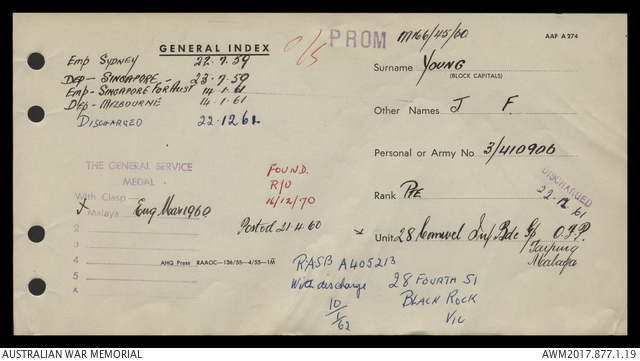 GENERAL INDEX
O/S
PROM
M166/45/60
AAF A 274
Emp Sydney 22.7.59
Dep — Singapore 23.7.59
Emp - Singapore For Aust 14.1.61
Dep - Melbourne 14.1.61
Discharged 22.12.61
Surname YOUNG
(BLOCK CAPITALS)
Other Names J F.
Personal or Army No 3/410906
Rank PTE
DISCHARGED
22.12.61
Unit 28 Comwel Inf Bde Gp O.F.P.
Taiping
Malaya
THE GENERAL SERVICE
MEDAL
With Clasp
X Malaya Eng Mar 1960
2
3
4
5
Posted 21.4.60
FOUND.
R/U
16/12/70
AHQ Press RAAOC—136/55—4/55—1M
RASB A405213
With discharge
10/1/62
28 Fourth St
Black Rock
Vic
AUSTRALIAN WAR MEMORIAL
AWM2017.877.1.19